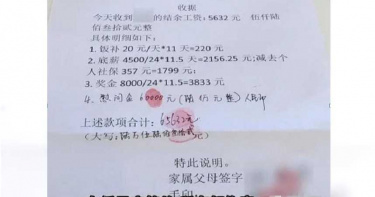 收据
今天收到 的结余工资：5632 元 伍仟陆
佰叁拾贰元整
具体明细如下：
1. 饭补 20 元/天*11 天=220 元
2. 底薪 4500/24*11.5 天=2156.25 元;减去个
人社保 357 元=1799 元;
3. 奖金 8000/24*11.5=3833 元
4. 慰问金 60000元(陆万元整)人民币
上述款项合计：65632元
(大写：陆万伍仟陆佰叁拾贰元)
特此说明。
家属父母签字
手印